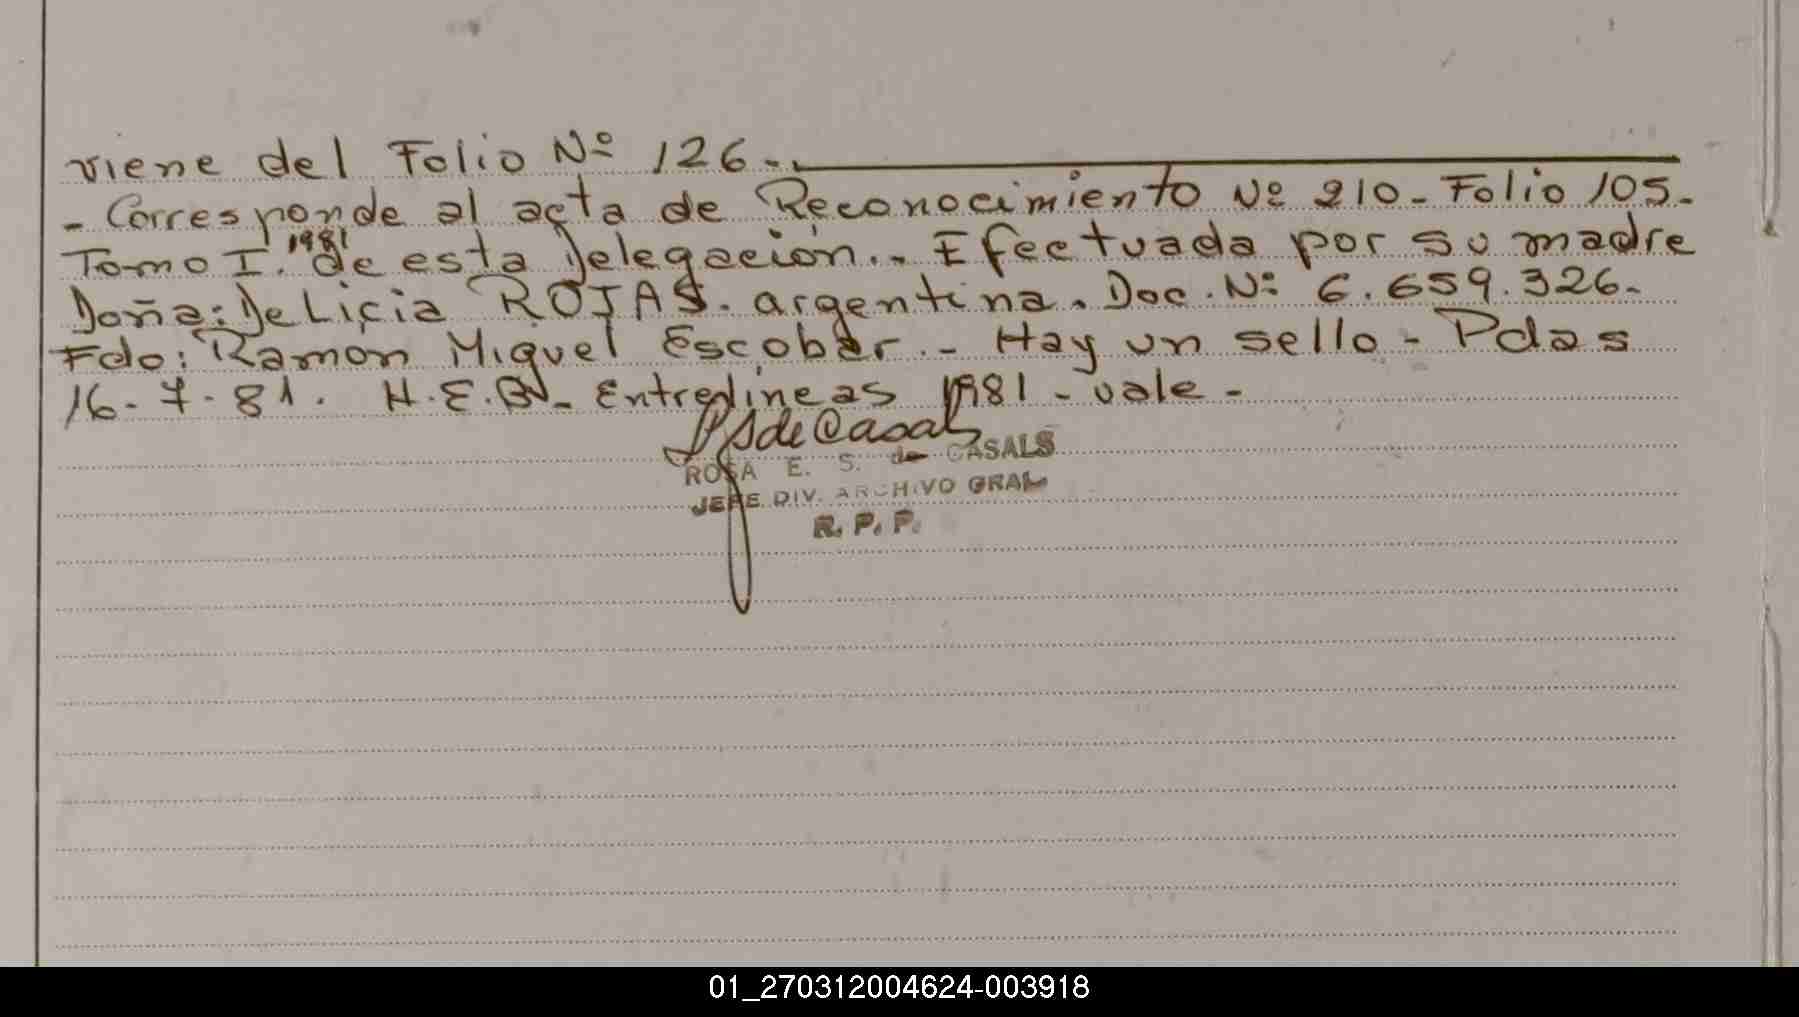 viene del Folio Nº 126-.
- Corresponde al acta de Reconocimiento Nº 210- Folio 105.-
1981
Tomo I." de esta Delegación.- Efectuada por su madre
Doña: Delicia ROJAS. argentina. Doc. Nº 6.659.326-
Fdo: Ramon Miguel Escobar.- Hay un sello - Pdas
16-7-81. H.E.B- Entrelineas 1981 - vale -
S de Casals
ROSA E. S. de CASALS
JEFE DIV. ARCHIVO GRAL
R. P. P.
01_270312004624-003918